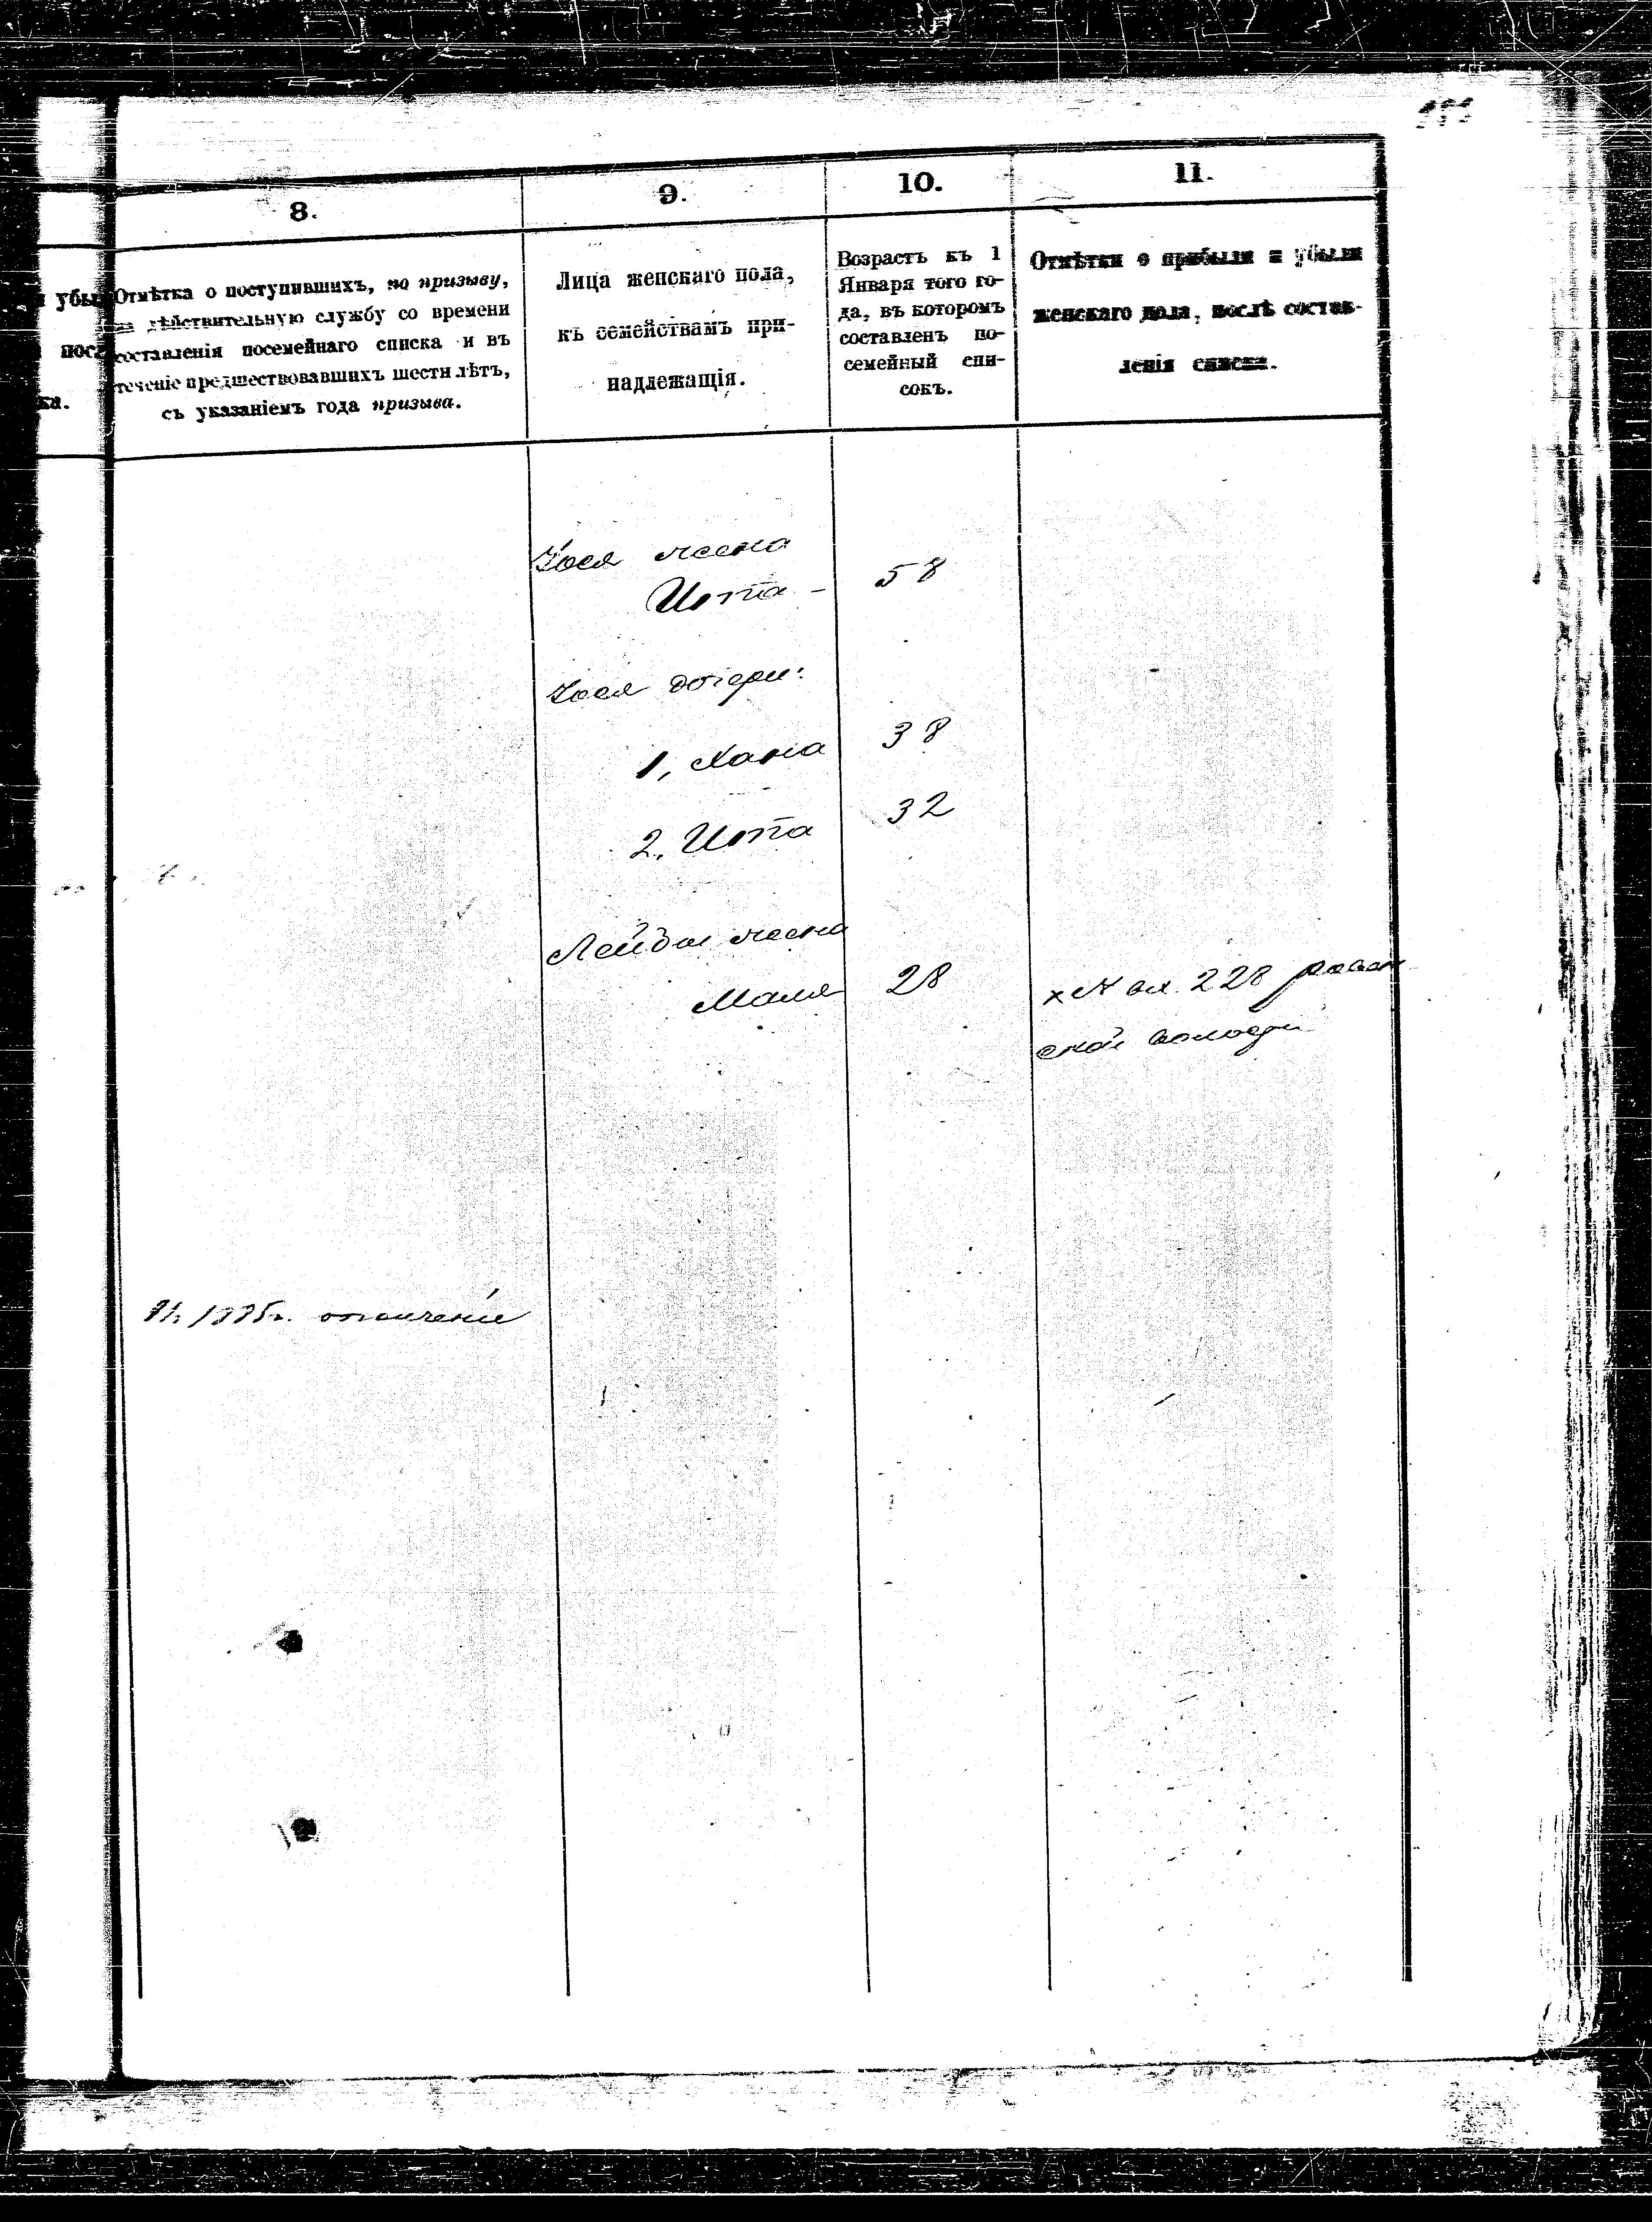 8.
9.
10.
11.
убы
посл
ка.
Отмѣтка о поступившихъ, по призыву,
на дѣйствительную службу со времени
составленія посемейнаго списка и въ
теченіе предшествовавшихъ шести лѣтъ,
съ указаніемъ года призыва.
Лица женскаго пола,
къ семействамъ при-
надлежащія.
Возрастъ къ 1
Января того го-
да, въ которомъ
составленъ по-
семейный спи-
сокъ.
Отмѣтки о прибыли и убыли
женскаго пола, послѣ состав-
ленія списка.
жена
Ита - 58
дочери:
1, Хана 38
2, Ита 32
Лейбы жена
Маля 28
х № 228
ской
ополченіе